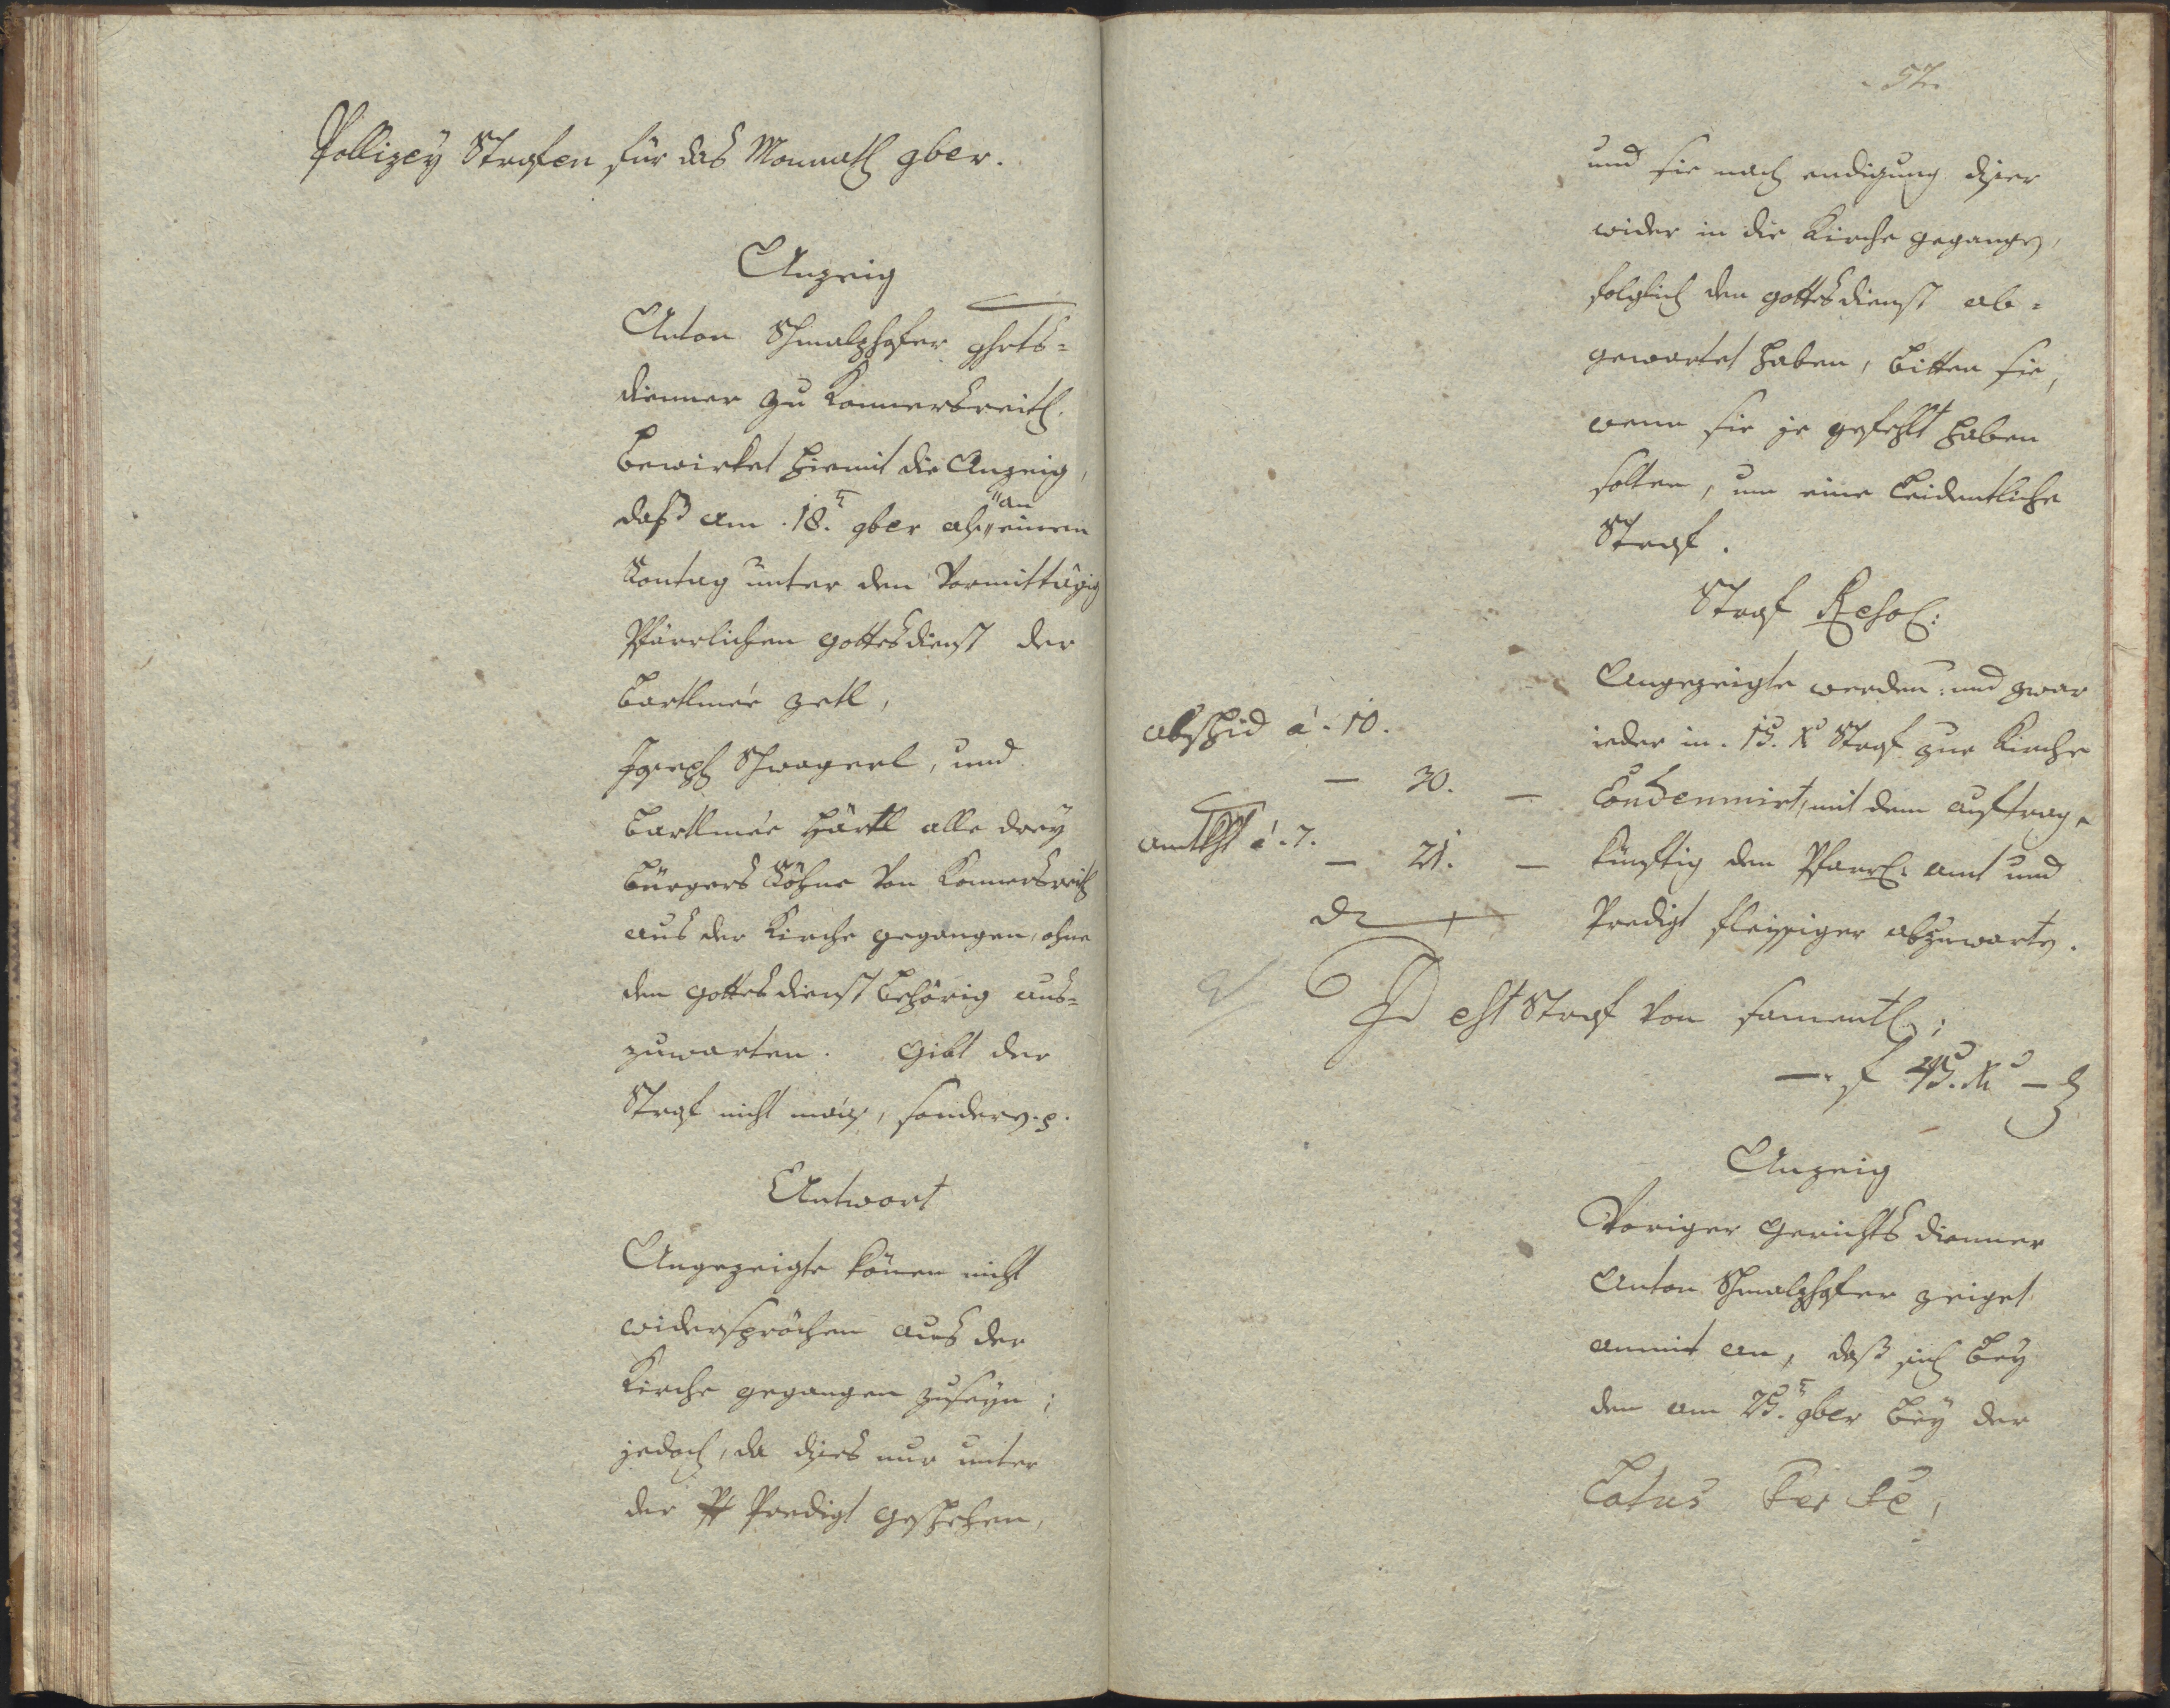 Pollizey Strafen für das Monnath 9ber.
Anzeig
Anton Schmalzhofer ghrts=
dienner zu Konnersreith.
bewirket hiemit die Anzeig,
daß am .18.t 9ber als "an" einem
Sontag unter den Vormittägig
Pfärrlichen gottesdienst der
Bartlmée Zetl,
Joseph Schwagerl, und
Bartlmée Härtl alle drey
bürgers Söhne von Konnersreith
aus der Kirche gegangen, ohne
den gottesdienst behörig aus=
zuwarten. Gibt der
Straf nicht , sondern. p.
Antwort
Angezeigte könen nicht
widersprächen aus der
Kirche gegangen zuseÿn;
jedoch, da dises nur unter
der Predigt geschehen,
57.
und sie nach endigung diser
wider in die Kirche gegangen,
folglich den gottesdienst ab=
gewartet haben, bitten sie,
wenn sie je gefehlt haben
solten, um eine leidentliche
Straf.
Straf Resol:
Angezeigte werden: und zwar
abschid á. 10.
ieder in. 15. x Straf zur Kirche
— 30. —
Condemnirt, mit dem auftrag,
amtkst á. 7.
— 21. —
künftig den Pfarrl: amt und
dt
Predigt fleissiger abzuwarten.
Id est Straf von sament:;
—. f 45. x —
Anzeig
Voriger Gerichts dienner
Anton Schmalzhofer zeiget
anmit an, daß sich beÿ
den am 25.t 9ber beÿ der
Latus Per se,